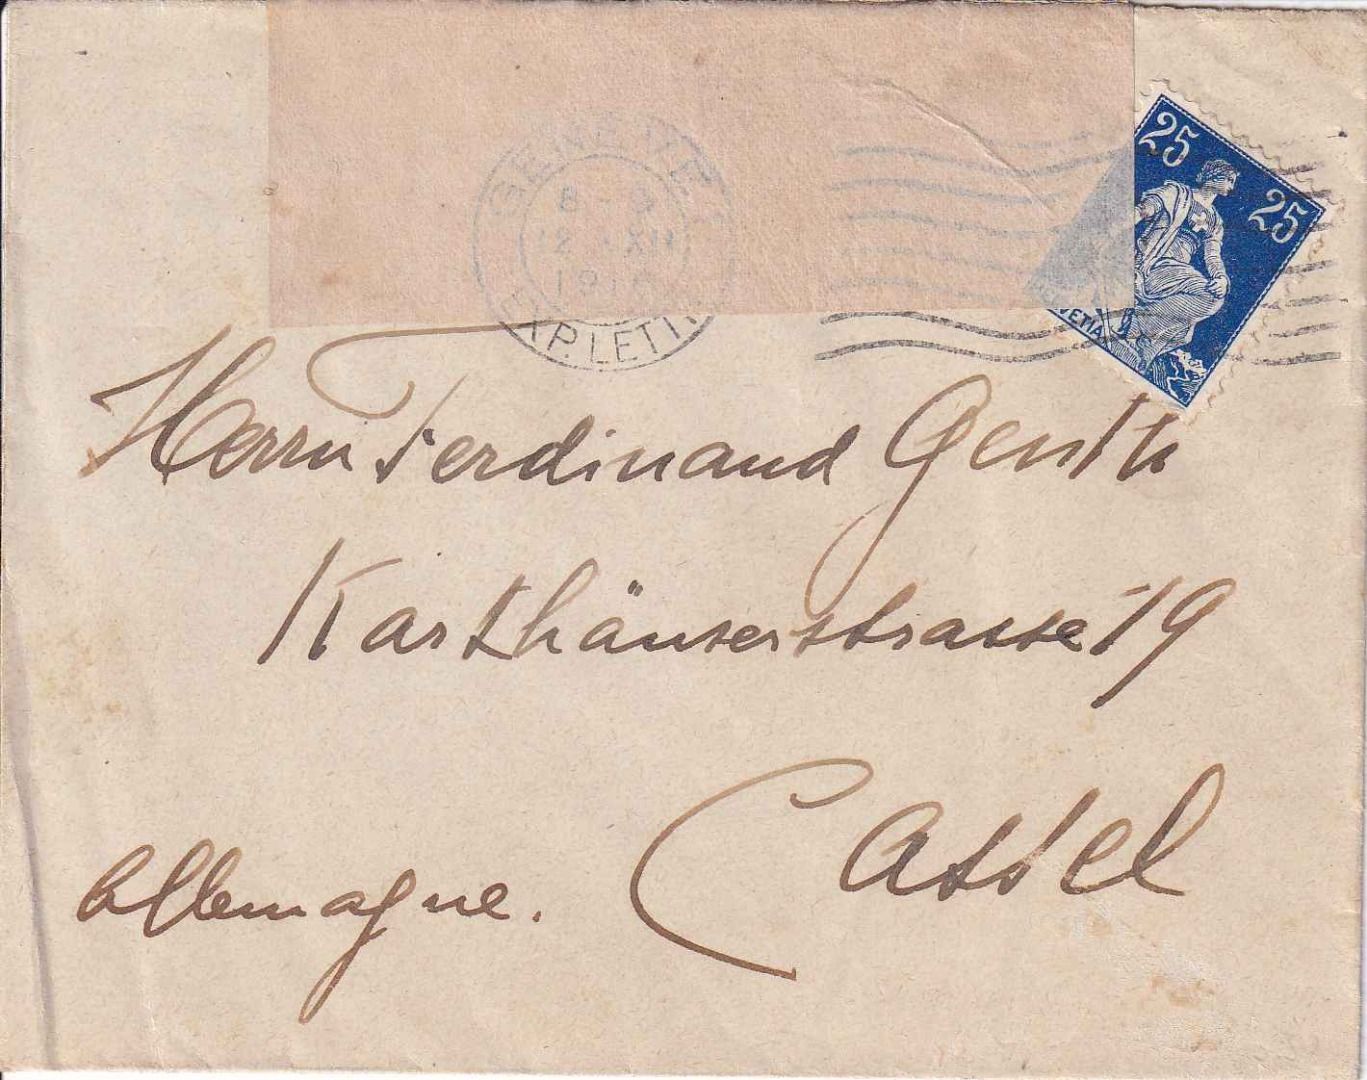 GENEVE 1
8 9
12. XII
EXP. LETTR.
25
25
HELVETIA
Herrn Ferdinand Genth
Karthäuserstrasse 19
Cassel
Allemagne.